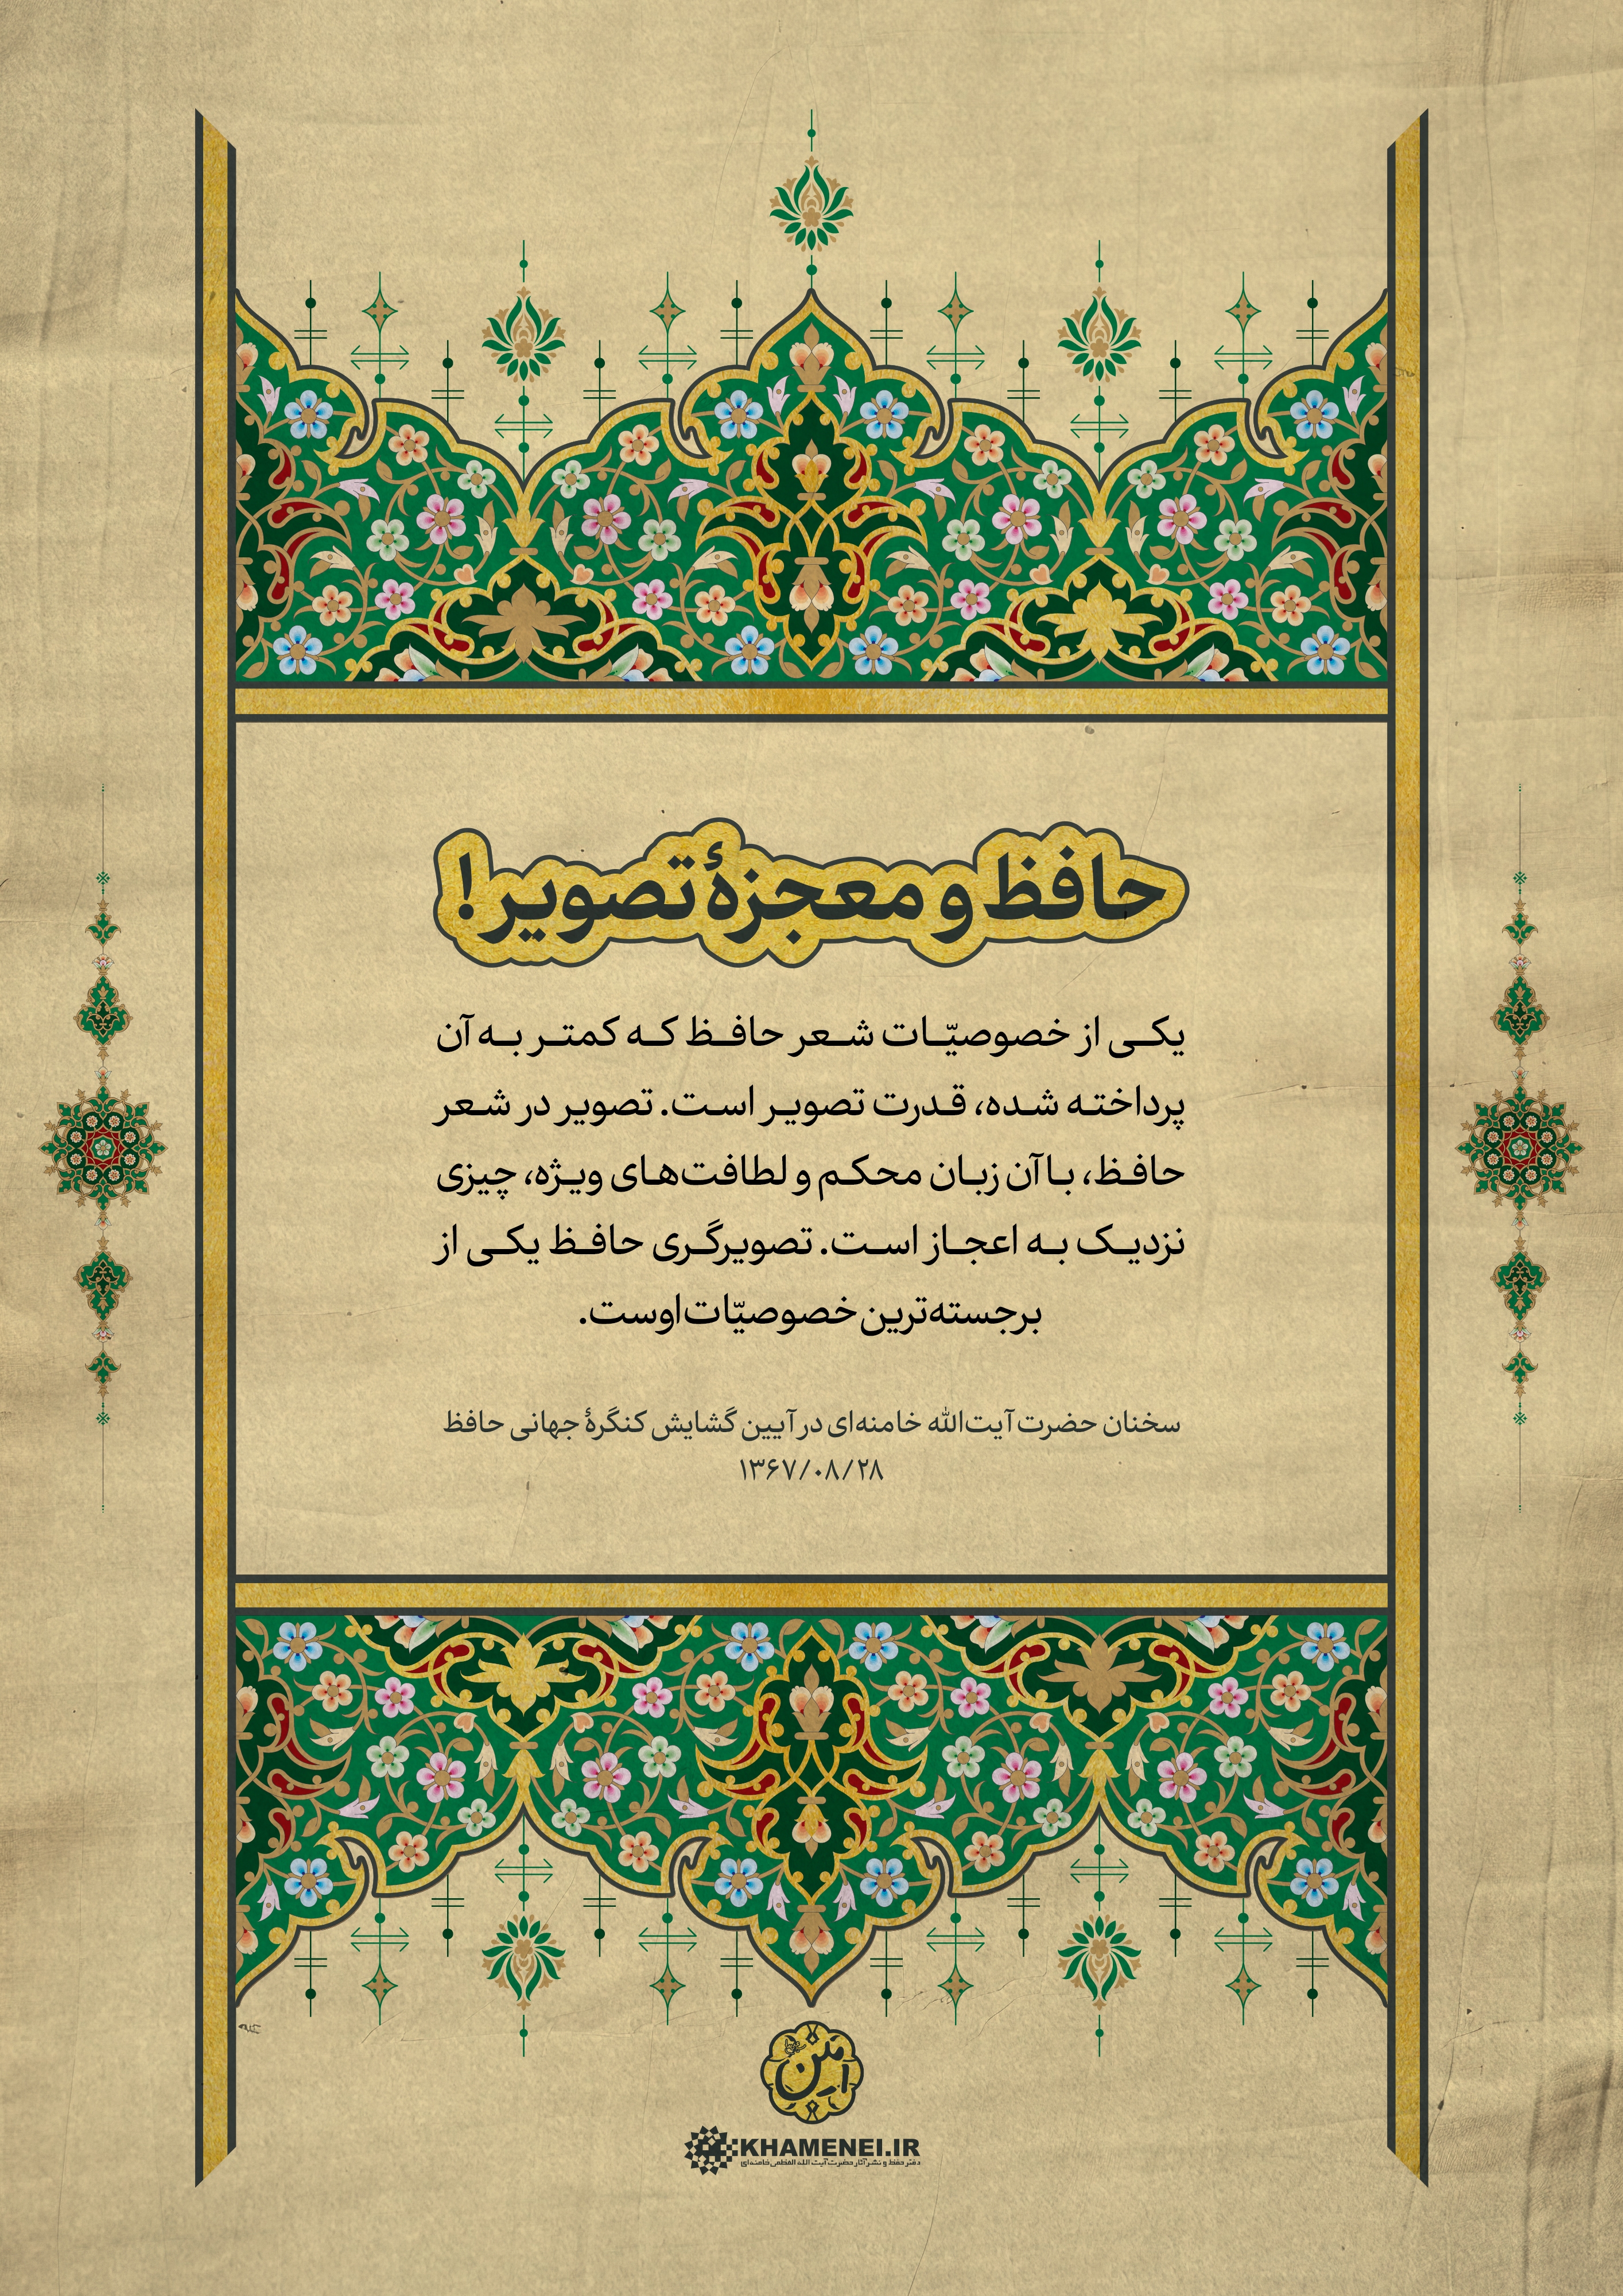 حافظ و معجزهٔ تصویر!
یکی از خصوصیّات شعر حافظ که کمتر به آن
پرداخته شده، قدرت تصویر است. تصویر در شعر
حافظ، با آن زبان محکم و لطافت‌های ویژه، چیزی
نزدیک به اعجاز است. تصویرگری حافظ یکی از
برجسته‌ترین خصوصیّات اوست.
سخنان حضرت آیت‌الله خامنه‌ای در آیین گشایش کنگرهٔ جهانی حافظ
۱۳۶۷/۰۸/۲۸
KHAMENEI.IR
دفتر حفظ و نشر آثار حضرت آیت الله العظمی خامنه‌ای